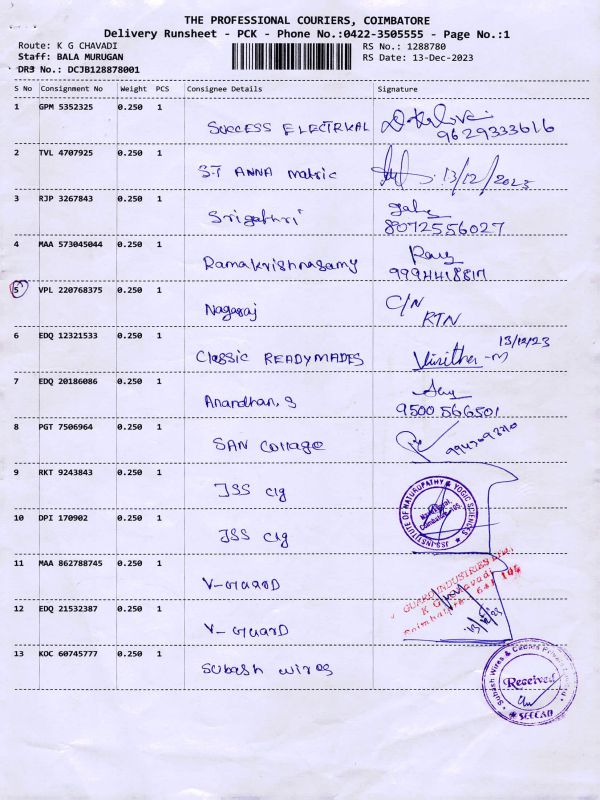 THE PROFESSIONAL COURIERS, COIMBATORE
Delivery Runsheet - PCK - Phone No.:0422-3505555 - Page No.:1
Route: K G CHAVADI
RS No.: 1288780
Staff: BALA MURUGAN
RS Date: 13-Dec-2023
DRS No.: DCJB128878001
S No Consignment No Weight PCS Consignee Details Signature
1 GPM 5352325 0.250 1
SUCCESS ELECTRKAL
9629333616
2 TVL 4707925 0.250 1
S.T ANNA Matric 13/12/2023
3 RJP 3267843 0.250 1
Srigathri
8072556027
4 MAA 573045044 0.250 1
Ramakrishnasamy
9994418817
5 VPL 220768375 0.250 1
Nagaraj C/N
RTN
6 EDQ 12321533 0.250 1
13/12/23
Classic READYMADES
7 EDQ 20186086 0.250 1
Anandhan.S
9500566501
8 PGT 7506964 0.250 1
SAN Collage
9 RKT 9243843 0.250 1
JSS clg
JSS-INSTITUTE OF NATUROPATHY & YOGIC SCIENCES
10 DPI 170902 0.250 1
JSS clg
11 MAA 862788745 0.250 1
V-GUARD
GUARD INDUSTRIES
12 EDQ 21532387 0.250 1
V-GUARD
13 KOC 60745777 0.250 1
Subash wires
Subash Wires & Cables
Received